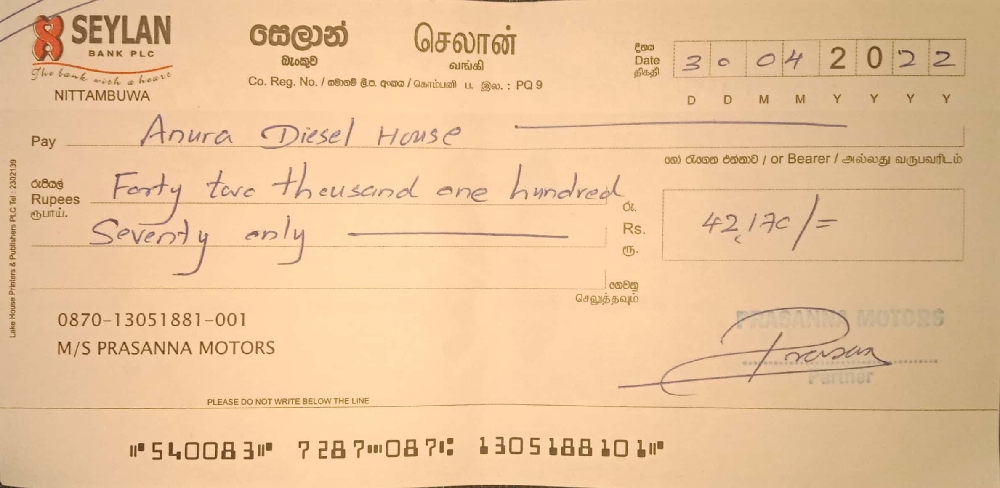 SEYLAN
BANK PLC
The bank with a heart
NITTAMBUWA
සෙලාන්
බැංකුව
செலான்
வங்கி
Co. Reg. No. / සමාගම් ලි.ප. අංකය / கொம்பனி ப. இல. : PQ 9
දිනය
Date
திகதி
3 0 0 4 2 0 2 2
D D M M Y Y Y Y
Pay Anura Diesel House
හෝ රැගෙන එන්නාට / or Bearer / அல்லது வருபவரிடம்
රුපියල්
Rupees
ரூபாய்.
Forty two thousand one hundred
Seventy only
රු.
Rs.
ரூ.
42,170/=
ගෙවනු
செலுத்தவும்
Lake House Printers & Publishers PLC Tel : 2302139
0870-13051881-001
M/S PRASANNA MOTORS
PRASANNA MOTORS
Prasan
Partner
PLEASE DO NOT WRITE BELOW THE LINE
⑈540083⑈ 7287⑉087⑆ 1305188101⑈